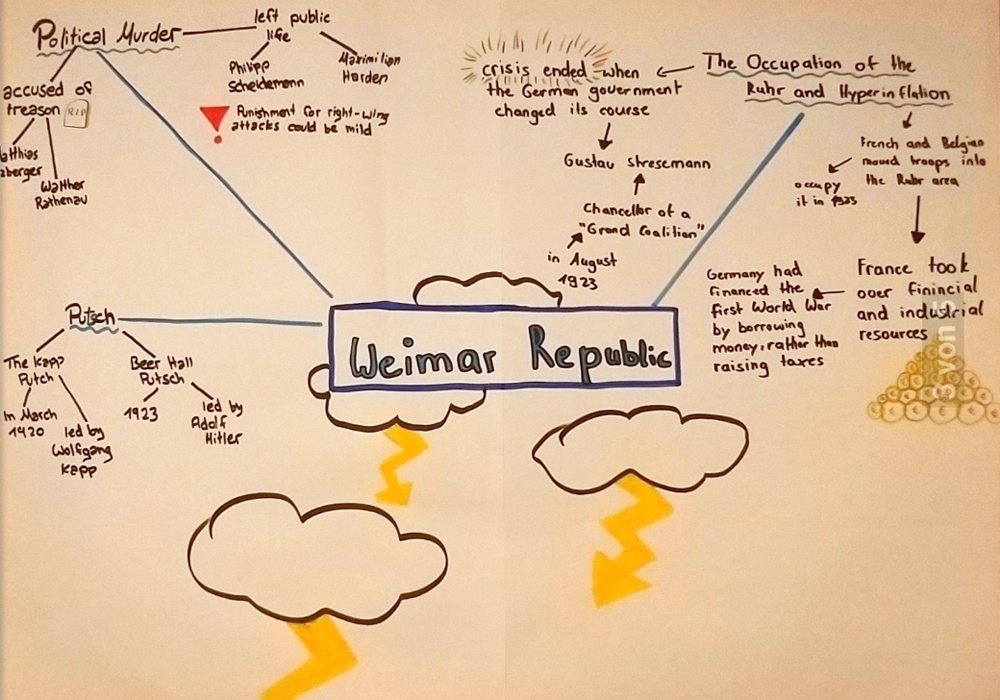 Political Murder
left public
life
Philipp
Scheidemann
Maximilian
Harden
accused of
treason
R.I.P
Walther
Rathenau
Punishment for right-wing
attacks could be mild
crisis ended when
the German government
changed its course
Gustav Stresemann
Chancellor of a
"Grand Coalition"
in August
1923
The Occupation of the
Ruhr and Hyperinflation
French and Belgian
moved troops into
the Ruhr area
occupy
it in 1923
France took
over finincial
and industrial
resources
Germany had
financed the
first World War
by borrowing
money, rather than
raising taxes
Weimar Republic
Putsch
The Kapp
Putch
in March
1920
led by
Wolfgang
Kapp
Beer Hall
Putsch
1923
led by
Adolf
Hitler
3 von 5